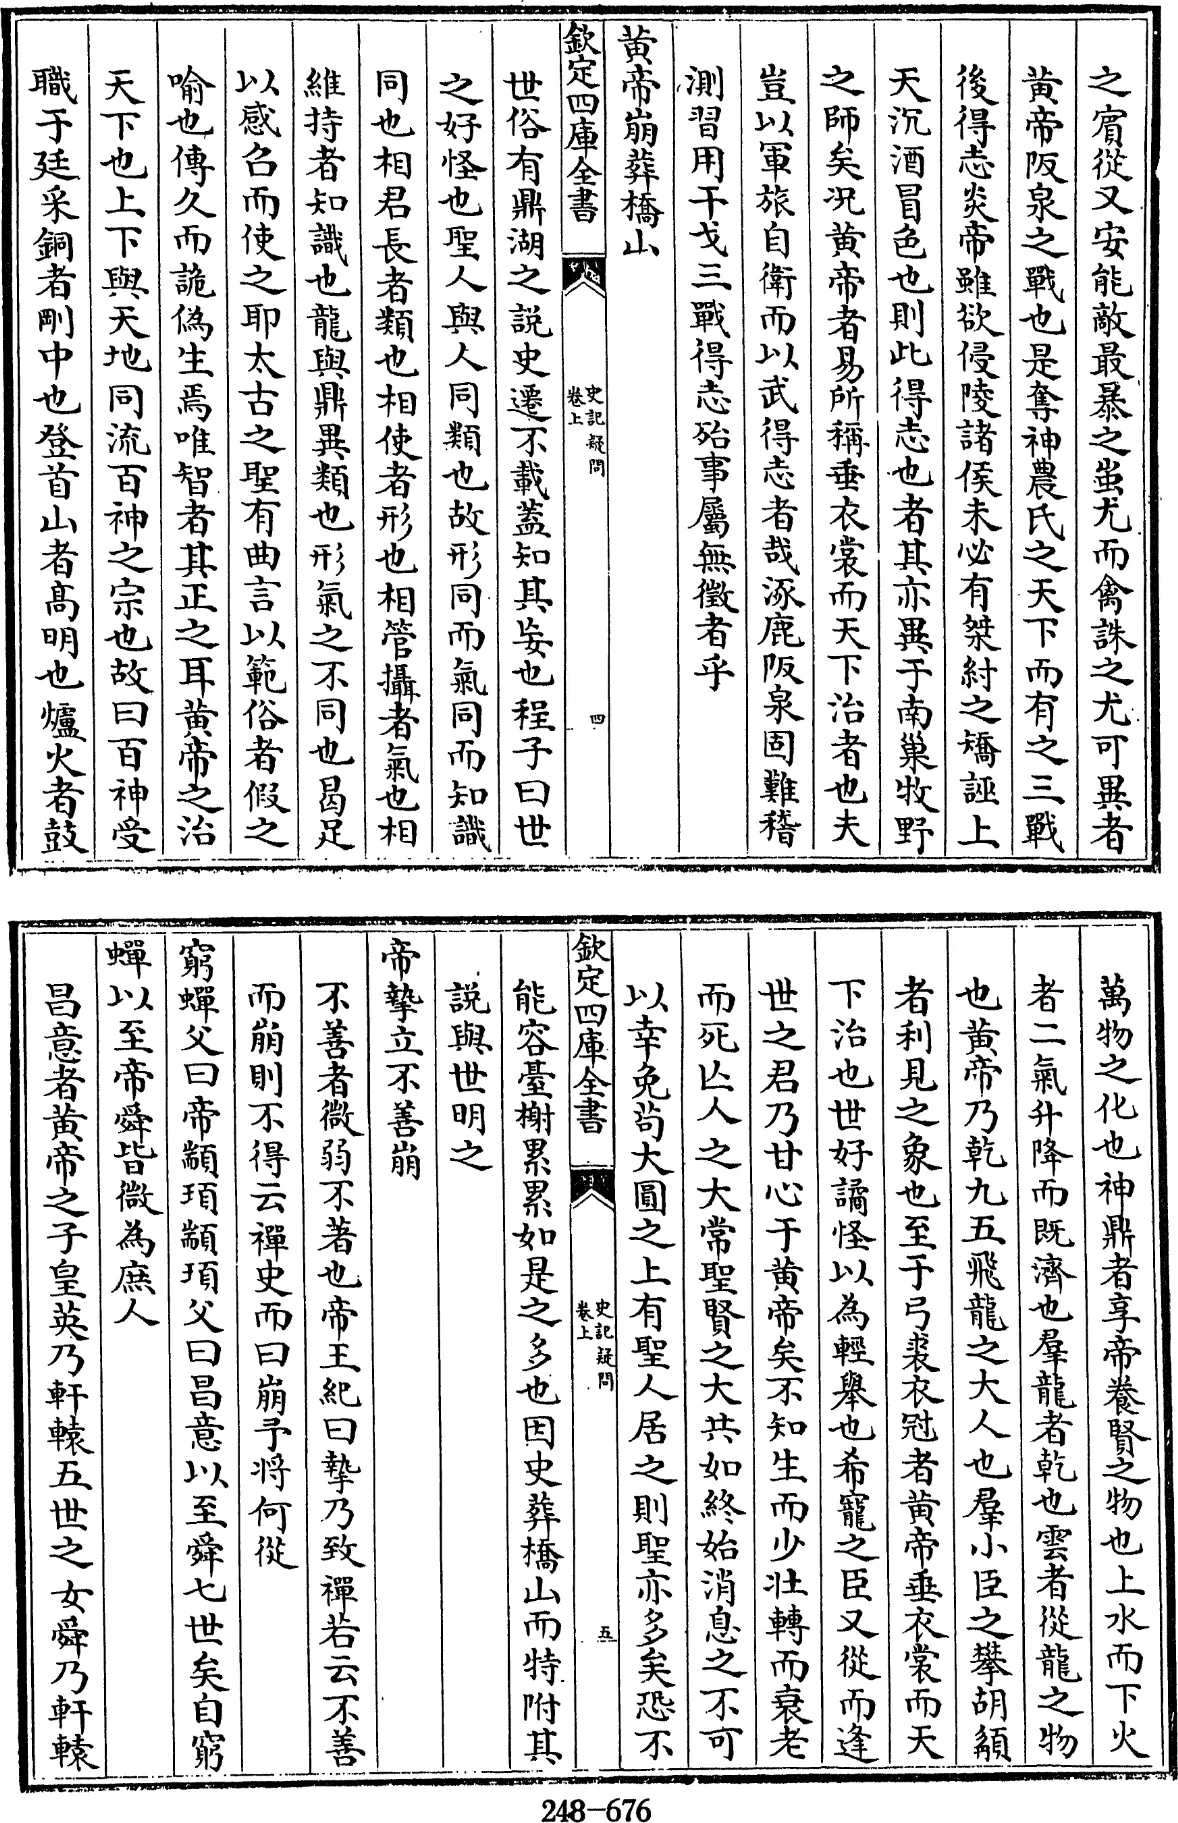 之賓從又安能敵最暴之蚩尤而禽誅之尤可異者
黄帝阪泉之戰也是奪神農氏之天下而有之三戰
後得志炎帝雖欲侵陵諸侯未必有桀紂之矯誣上
天沉酒冒色也則此得志也者其亦異于南巢牧野
之師矣况黄帝者易所稱垂衣裳而天下治者也夫
豈以軍旅自衛而以武得志者哉涿鹿阪泉固難稽
測習用干戈三戰得志殆事屬無徵者乎
黄帝崩葬橋山
欽定四庫全書
史記疑問
卷上
四
世俗有鼎湖之説史遷不載葢知其妄也程子曰世
之好怪也聖人與人同類也故形同而氣同而知識
同也相君長者類也相使者形也相管攝者氣也相
維持者知識也龍與鼎異類也形氣之不同也曷足
以感召而使之耶太古之聖有曲言以範俗者假之
喻也傳久而詭偽生焉唯智者其正之耳黄帝之治
天下也上下與天地同流百神之宗也故曰百神受
職于廷采銅者剛中也登首山者高明也爐火者鼓
萬物之化也神鼎者享帝養賢之物也上水而下火
者二氣升降而既濟也羣龍者乾也雲者從龍之物
也黄帝乃乾九五飛龍之大人也羣小臣之攀胡䫇
者利見之象也至于弓裘衣冠者黄帝垂衣裳而天
下治也世好譎怪以為輕舉也希寵之臣又從而逢
世之君乃甘心于黄帝矣不知生而少壯轉而衰老
而死亾人之大常聖賢之大共如終始消息之不可
以幸免茍大圓之上有聖人居之則聖亦多矣恐不
欽定四庫全書
史記疑問
卷上
五
能容臺榭累累如是之多也因史葬橋山而特附其
説與世明之
帝摯立不善崩
不善者微弱不著也帝王紀曰摯乃致禪若云不善
而崩則不得云禪史而曰崩予将何從
窮蟬父曰帝顓頊顓頊父曰昌意以至舜七世矣自窮
蟬以至帝舜皆微為庶人
昌意者黄帝之子皇英乃軒轅五世之女舜乃軒轅
248-676